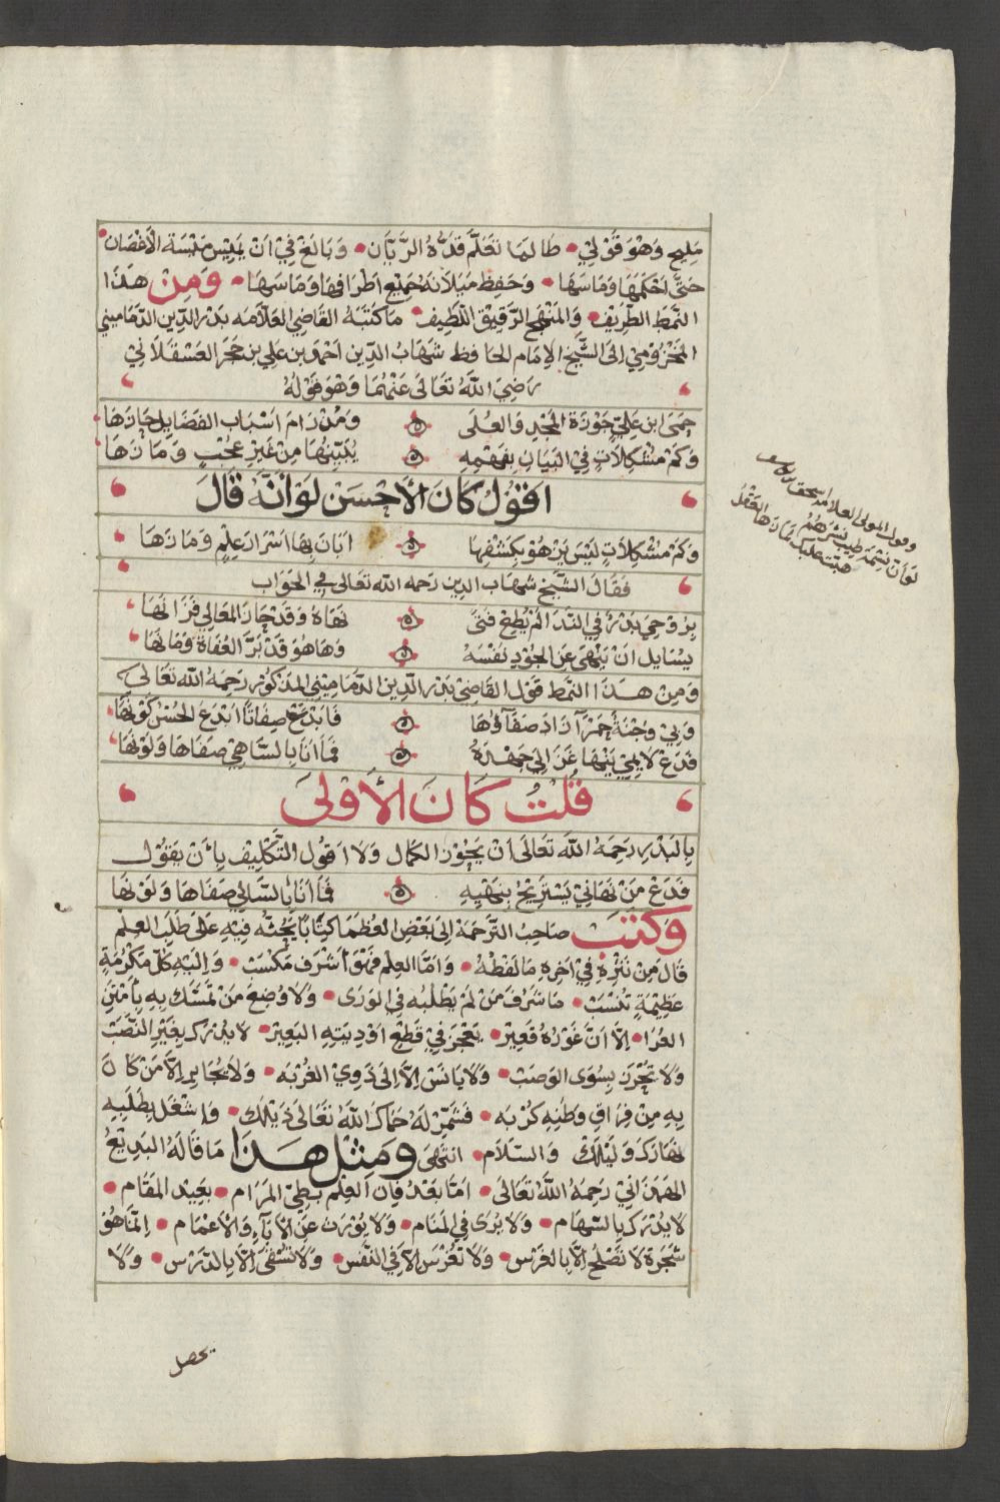 مليح وَهْوَ قَوْلِي طَالَمَا تَعَلَّمَ قَدُّهُ الرَّيَّان وَبَالَغَ فِي اَنْ يَمِيْسَ مَيْسَةَ الْأَغْصَان
حَتَّى اَحْكَمَهَا وَمَا سَهَا وَحَفِظَ مَيَلَانَهُ جَمِيْعِ اَطْرَافِهَا وَمَا سَهَا وَمِن هَذَا
النَّمَط الظَّرِيْف وَالْمَنْهَج الرَّقِيْق اللَّطِيف مَا كَتَبَهُ القَاضِي العَلَّامَه بَدْر الدِّين الدَّمَامِيني
المَخْزُوْمِيْ اِلَى الشَّيخ الاِمَام الحَافِظ شَهَابُ الدِّين اَحْمَد بن عَلِي بن حَجَر العَسْقَلَانِيْ
رَضِيَ اللَّهُ تَعَالَى عَنْهُمَا وَهْوَ قَوْلُهُ
حِمَى ابن عَلِيّ حَوْزَة المَجْدِ وَالعُلَى وَمَنْ رَامَ اَسْبَاب الفَضَايل حَازَهَا
وَكَمْ مُشْكِلَاتٍ فِي البَيَانِ بِفَهْمِهِ يُبَيِّنُهَا مِنْ غَيْرِ عُجْبٍ وَمَا زَهَا
اَقُوْلُ كَانَ الْأَحْسَن لَوْ أنَّهُ قَالَ
وَكَمْ مُشْكِلَاتٍ لَيْسَ يَزْهُوْ بِكَشْفِهَا اَبَانَ بِهَا اَسْرَارَ عِلْمٍ وَمَا زَهَا
فَقَالَ الشَّيْخ شهَاب الدين رَحمه الله تعَالى فِي الجَوَاب
بِرُوْحِيَ بَدْرٌ فِي النَّدَا لَمْ يُطِعْ فَتًى نَهَاهُ وَقَدْ حَازَ المَعَالِي فَزَانَهَا
يُسَايل اَنْ يَنْهَى عَنِ الجُوْدِ نَفْسَهُ وَهَا هُوَ قَدْ بَرَّ العُفَاةَ وَمَا نَهَا
وَمِنْ هَذَا النَّمَط قَوْل القَاضِيْ بَدْر الدِّين الدَّمَامِيْنِي المَذْكُوْر رَحِمَهُ اللَّه تَعَالَى
وَبِيْ وَجْنَةٌ حَمْرَآ زَادَ صَفَآؤُهَا فَابْدَعَ صِفَاتًا اَبْدَعَ الْحُسْنُ كَوْنَهَا
فَدَعْ لَايِمِي يَنْهَا غَزَالِي جَهْدَهُ فَمَا اَنَا بِالسَّاهِيْ صَفَاهَا وَلَوْ نَهَا
قُلْتُ كَانَ الْأَوْلَى
بِالْبَدْر رَحِمَهُ اللَّه تَعَالَى اَنْ يَحُوْزَ الكَمَال وَلَا اَقُولُ التَّكْلِيْف بِأَنْ يَقُوْل
فَدَعْ مَنْ نَهَانِيْ يَسْتَرِيْحُ بِنَهْيِهِ فَمَا اَنَا بِالسَّالِي صَفَاهَا وَلَوْ نَهَا
وَكَتَبَ صَاحِبُ التَّرجَمَة اِلَى بَعْضِ العُظَمَا كِتَابًا يَحُثُّهُ فِيْهِ عَلَى طَلَبِ العِلْم
قَالَ مِنْ نَثْرِهِ فِيْ اَخِرِهِ مَا لَفْظُهُ وَاَمَّا العِلْمُ فَهْوَ اَشْرَف مَكْسَبْ وَاِلَيْهِ كُلّ مَكْرُمَةٍ
عَظِيْمَةٍ تُنْسَبْ مَا شَرُفَ مَنْ لَمْ يَطْلُبهُ فِي الوَرَى وَلَا وُضِعَ مَنْ تَمَسَّكَ بِهِ بِأَمْتَنِ
العُرَا اِلَّا اَنَّ غَوْرَهُ قَعِيْر يَعْجَزُ فِيْ قَطْعِ اَوْدِيَتِهِ البَعِيْر لَا يُدْرَكُ بِغَيْرِ النَّصَبْ
وَلَا يُحْرَزُ بِسِوَى الوَصَبْ وَلَا يَانَسُ اِلَّا اِلَى ذَوِيْ الغُرْبَه وَلَا يُحَابِر اِلَّا مَنْ كَانَ
بِهِ مِنْ فِرَاقِ وَطَنِهِ كُرْبَه فَشَمِّرْ لَهُ حَمَاكَ اللَّهُ تَعَالَى ذَيْلَكَ وَاشْغَلْ بِطَلَبِهِ
نَهَارَكَ وَلَيْلَكْ وَالسَّلَام انتَهَى وَمِثْلُ هَذَا مَا قَالَهُ البَدِيْعُ
الهَمَذَانِيْ رَحِمَهُ اللَّهُ تَعَالَى اَمَّا بَعْدُ فَاِن العِلْمَ بَطِيْ المَرَام بَعِيْد المَقَام
لَا يُدْرَكُ بِالسِّهَام وَلَا يُرَى فِي المَنَام وَلَا يُوْرَث عَنِ الْآبَآءِ وَالْأَعْمَام اِنَّمَا هُوَ
شَجَرَة لَا تَصْلُح اِلَّا بِالغَرْس وَلَا تُغْرَس اِلَّا فِي النَّفْس وَلَا تُسْقَى اِلَّا بِالدَّرْس وَلَا
يحصل
وقول المولى العلامه اسحق بن يوسف
لَوْ اَنَّ نِسْمَةَ طِيْبِ نَشْرِهِمُ
هبّت عليك